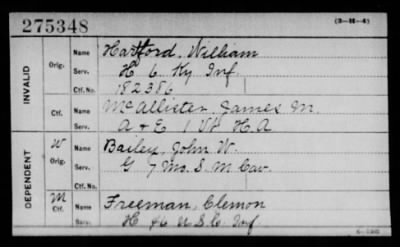 275348
(3-H-4)
INVALID
Orig.
Name Hartford, William
Serv. H 6 Ky Inf.
Ctf. No. 182386
Ctf.
Name McAllister, James M.
Serv. A & E 1 Vt H.A
DEPENDENT
W
Orig.
Name Bailey, John W.
Serv. G 7 Mo. S. M Cav.
Ctf. No.
M
Ctf.
Name Freeman, Clemon
Serv. H 46 U.S.C. Inf